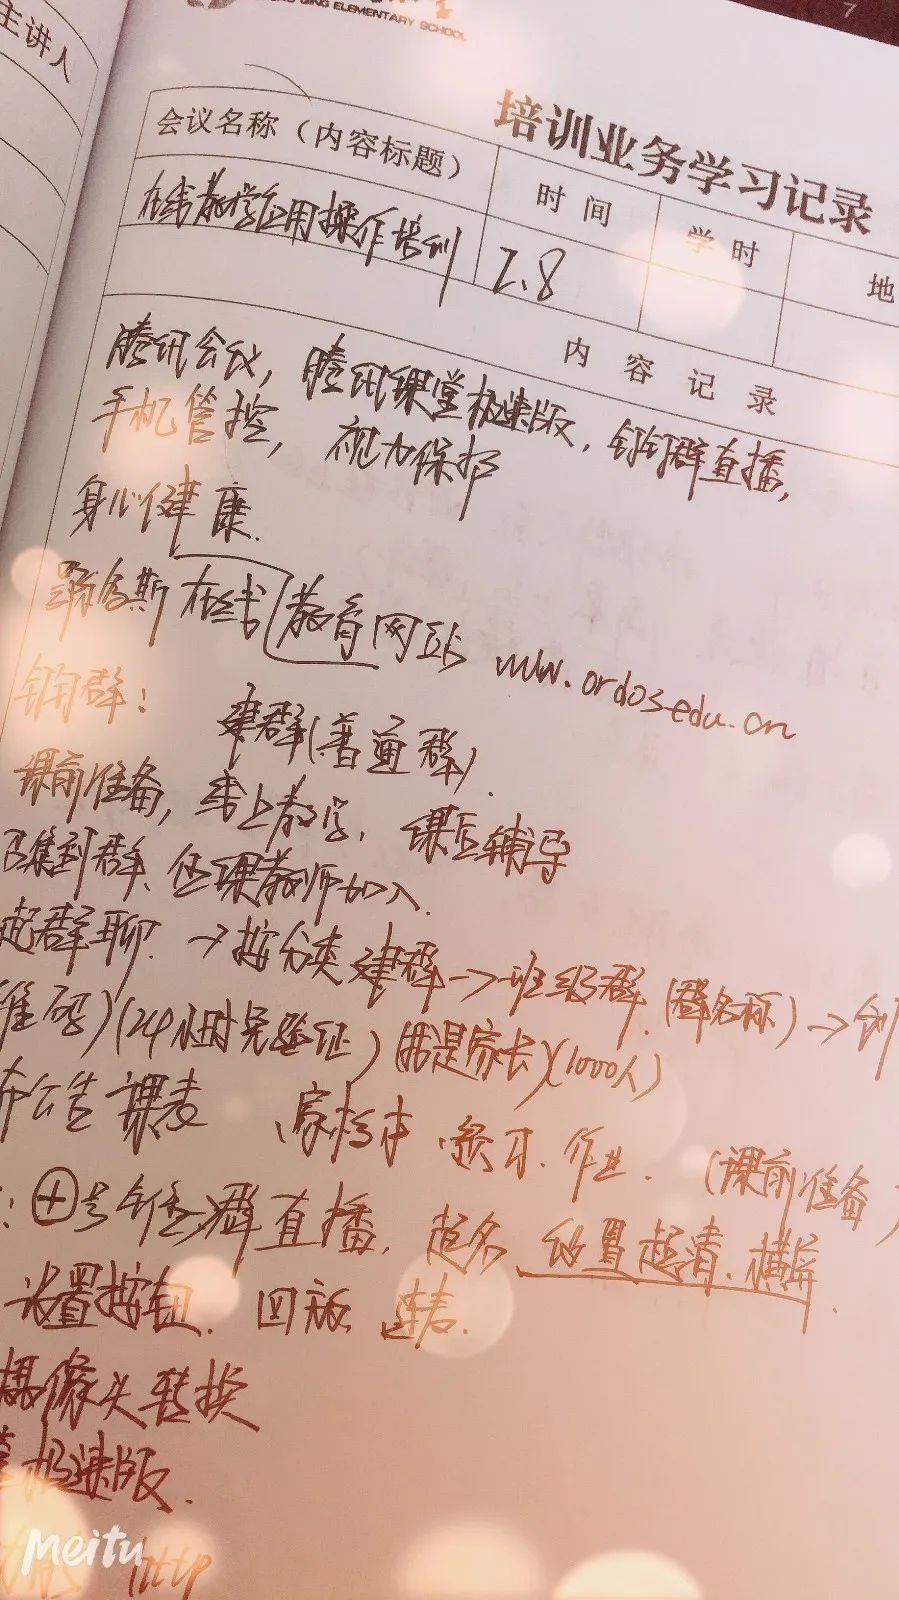 主讲人
7
QING ELEMENTARY SCHOOL
培训业务学习记录
会议名称（内容标题） 时间 学时 地
在线教学应用操作培训 2.8
内容记录
腾讯会议，腾讯课堂极速版，钉钉群直播，
手机管控，视力保护
身心健康.
鄂尔多斯在线教育网站 www.ordosedu.cn
钉钉群：建群(普通群).
课前准备，线上教学，课后辅导
召集到群、任课教师加入.
起群聊.→按分类建群→班级群.(群名称)→创
维码)(24小时免验证)(我是家长)(1000人)
布公告 课表、家校本、预习.作业.(课前准备)
：⊕号 群直播，起名 设置超清.横屏.
设置按钮.回放 连麦.
摄像头转换
极速版.
http
Meitu